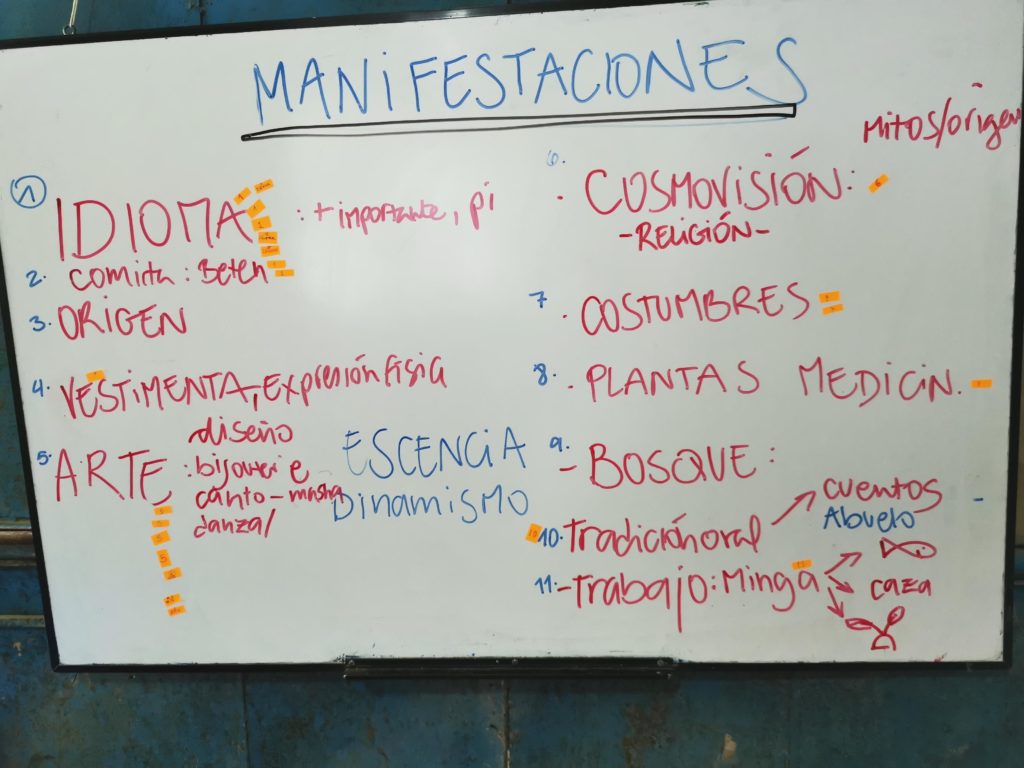 MANIFESTACIONES
1 IDIOMA : + importante, pi
2. comida : Beten
3. ORIGEN
4. VESTIMENTA, Expresión física
5. ARTE : diseño
bijouteri e
canto - masha
danza/
ESCENCIA
DINAMISMO
Mitos/origen
6. · COSMOVISIÓN:
- RELIGIÓN -
7. · COSTUMBRES
8. · PLANTAS MEDICIN.
9. - BOSQUE :
10. Tradición oral
cuentos
Abuelo
11. - Trabajo : Minga
caza